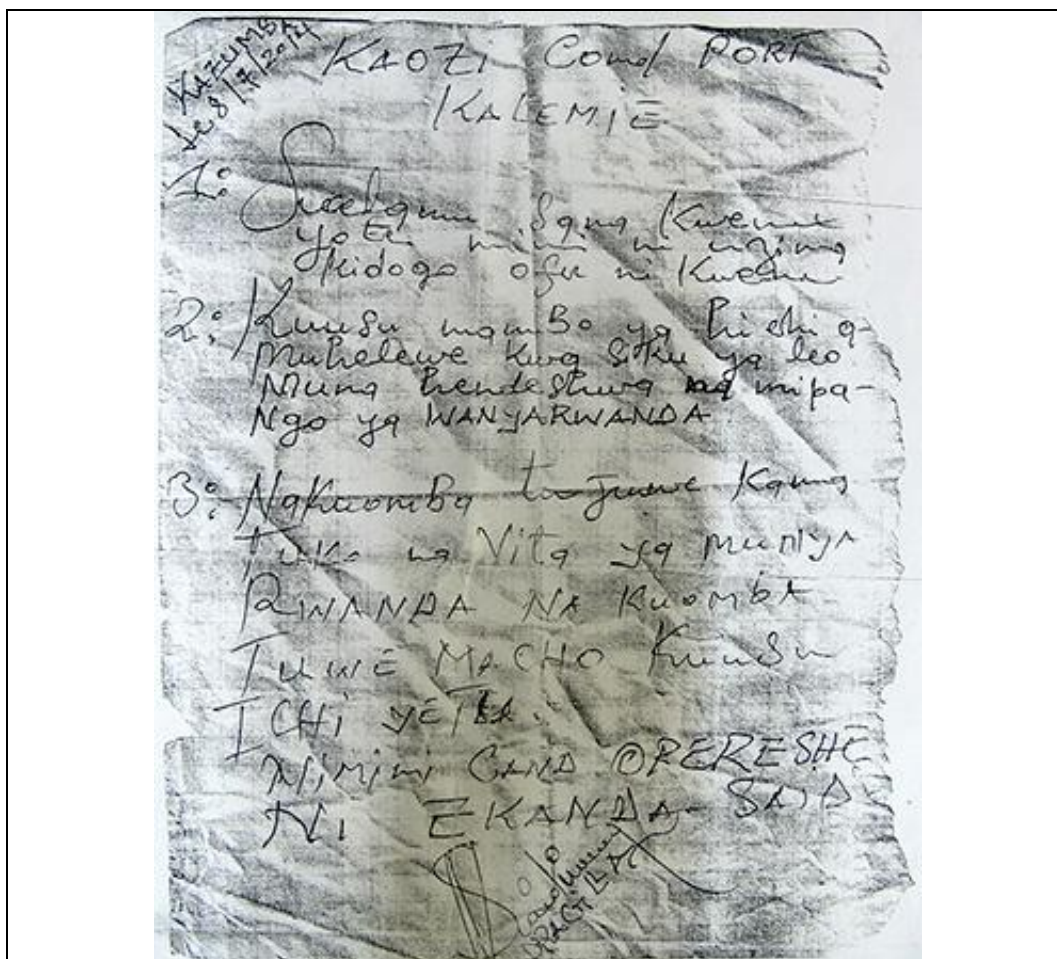 KAZUMBA
le 8/7/2014
KAOZI Comd PORT
KALEMIE
1: Sana Kwenu
yote mimi ni mzima
Kidogo ofu ni Kwenu
2: Kuusu mamBo ya hichi a-
Muhelewe Kwa siku ya leo
Muna hendeshwa na mipa-
Ngo ya WANYARWANDA
3: NaKuomBa tujuwe Kama
Tuko na Vita ya MUNYA
RWANDA NA KuomBA
TUWE MACHO Kuusu
ICHI YETU.
NiMimi CAND OPERESHE
Ni EKANDA SAID